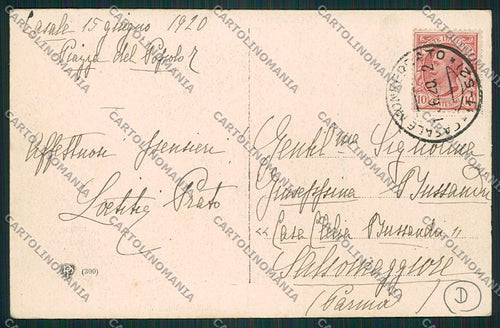 Casale 15 giugno 1920
Piazza del Popolo 2
Affettuosi Pensieri
Prato
Gentil ma Signorina
Giuseppina Bussandri
"Casa Clelia Bussandri"
Salsomaggiore
(Parma)
D
(300)
10
CASALE MONFERRATO
CARTOLINOMANIA